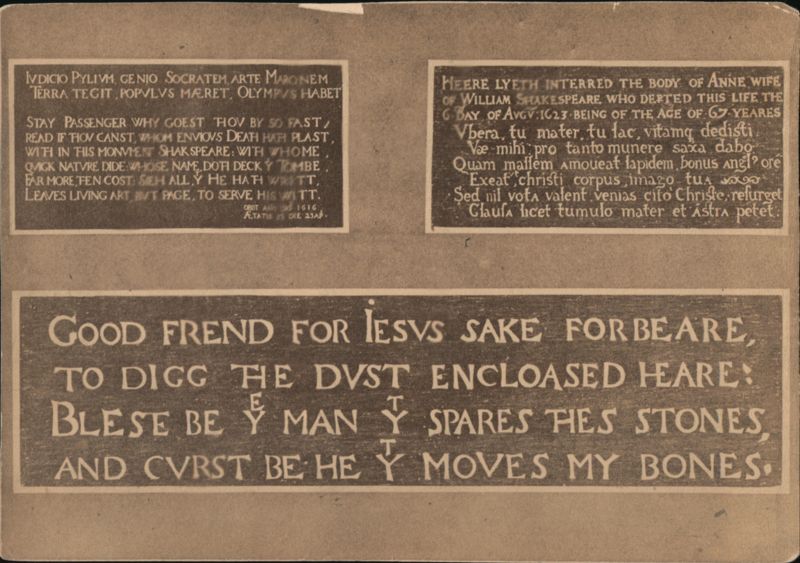 IVDICIO PYLIVM, GENIO SOCRATEM, ARTE MARONEM
TERRA TEGIT, POPVLVS MÆRET, OLYMPVS HABET
STAY PASSENGER WHY GOEST THOV BY SO FAST,
READ IF THOV CANST, WHOM ENVIOVS DEATH HATH PLAST,
WITH IN THIS MONVMENT SHAKSPEARE: WITH WHOME,
QVICK NATVRE DIDE: WHOSE NAME, DOTH DECK Y TOMBE,
FAR MORE, TEN COST: SIEH ALL, Y HE HATH WRITT,
LEAVES LIVING ART, BVT PAGE, TO SERVE HIS WITT.
OBIIT ANO DOI 1616
ÆTATIS DIE 23 AP.
HEERE LYETH INTERRED THE BODY OF ANNE WIFE
OF WILLIAM SHAKESPEARE WHO DEPTED THIS LIFE THE
6 DAY OF AVGV: 1623 · BEING OF THE AGE OF 67 YEARES
Vbera, tu mater, tu lac, vitamq dedisti.
Væ mihi; pro tanto munere saxa dabo
Quam mallem amoueat lapidem, bonus angl⁹ ore
Exeat, christi corpus, imago tua
Sed nil vota valent. venias cito Christe, resurget
Clausa licet tumulo mater et astra petet.
GOOD FREND FOR IESVS SAKE FORBEARE,
TO DIGG THE DVST ENCLOASED HEARE:
BLESE BE Yᴱ MAN Yᵀ SPARES THES STONES,
AND CVRST BE HE Yᵀ MOVES MY BONES.